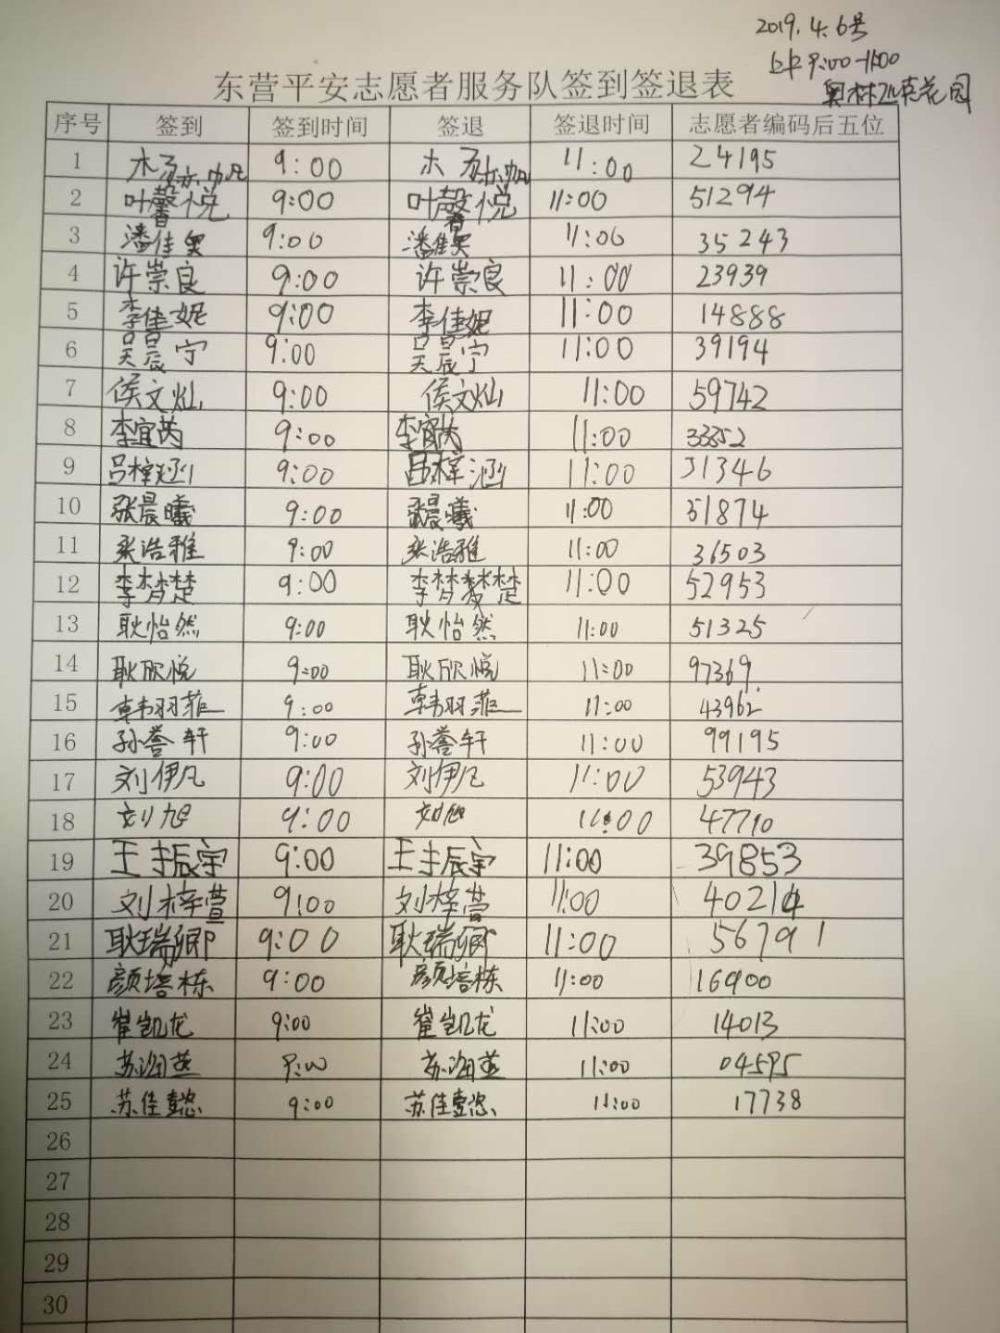 2019.4.6号
上午9:00-11:00
奥林匹克花园
东营平安志愿者服务队签到签退表
序号 签到 签到时间 签退 签退时间 志愿者编码后五位
1 9:00 11:00 24195
2 叶馨悦 9:00 叶馨悦 11:00 51294
3 潘佳昊 9:00 潘佳昊 11:00 35243
4 许崇良 9:00 许崇良 11:00 23939
5 李佳妮 9:00 李佳妮 11:00 14888
6 吴晨宁 9:00 吴晨宁 11:00 39194
7 侯文灿 9:00 侯文灿 11:00 59742
8 李宜芮 9:00 李宜芮 11:00 33352
9 吕梓涵 9:00 吕梓涵 11:00 31346
10 张晨曦 9:00 张晨曦 11:00 51874
11 张浩雅 9:00 张浩雅 11:00 36503
12 李梦楚 9:00 李梦楚 11:00 52953
13 耿怡然 9:00 耿怡然 11:00 51325
14 耿欣悦 9:00 耿欣悦 11:00 97369
15 韩羽菲 9:00 韩羽菲 11:00 43962
16 孙誉轩 9:00 孙誉轩 11:00 99195
17 刘伊凡 9:00 刘伊凡 11:00 53943
18 刘旭 9:00 刘旭 11:00 47710
19 王振宇 9:00 王振宇 11:00 39853
20 刘梓萱 9:00 刘梓萱 11:00 40214
21 耿瑞卿 9:00 耿瑞卿 11:00 56791
22 颜培栋 9:00 颜培栋 11:00 16900
23 崔凯龙 9:00 崔凯龙 11:00 14013
24 9:00 11:00 04595
25 苏佳懿 9:00 苏佳懿 11:00 17738
26
27
28
29
30